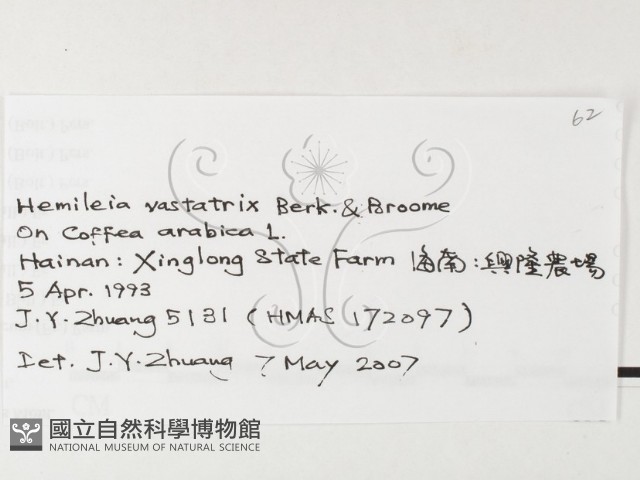 62
Hemileia vastatrix Berk. & Broome
On Coffea arabica L.
Hainan: Xinglong State Farm 海南:興隆農場
5 Apr. 1993
J.Y. Zhuang 5131 (HMAS 172097)
Det. J.Y. Zhuang 7 May 2007
國立自然科學博物館
NATIONAL MUSEUM OF NATURAL SCIENCE